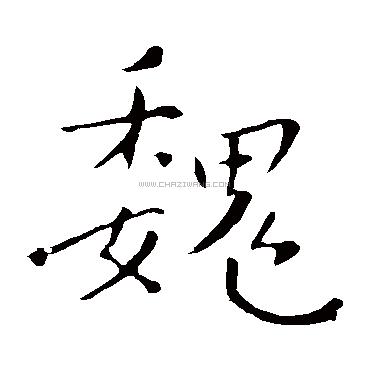 魏
WWW.CHAZIWANG.COM